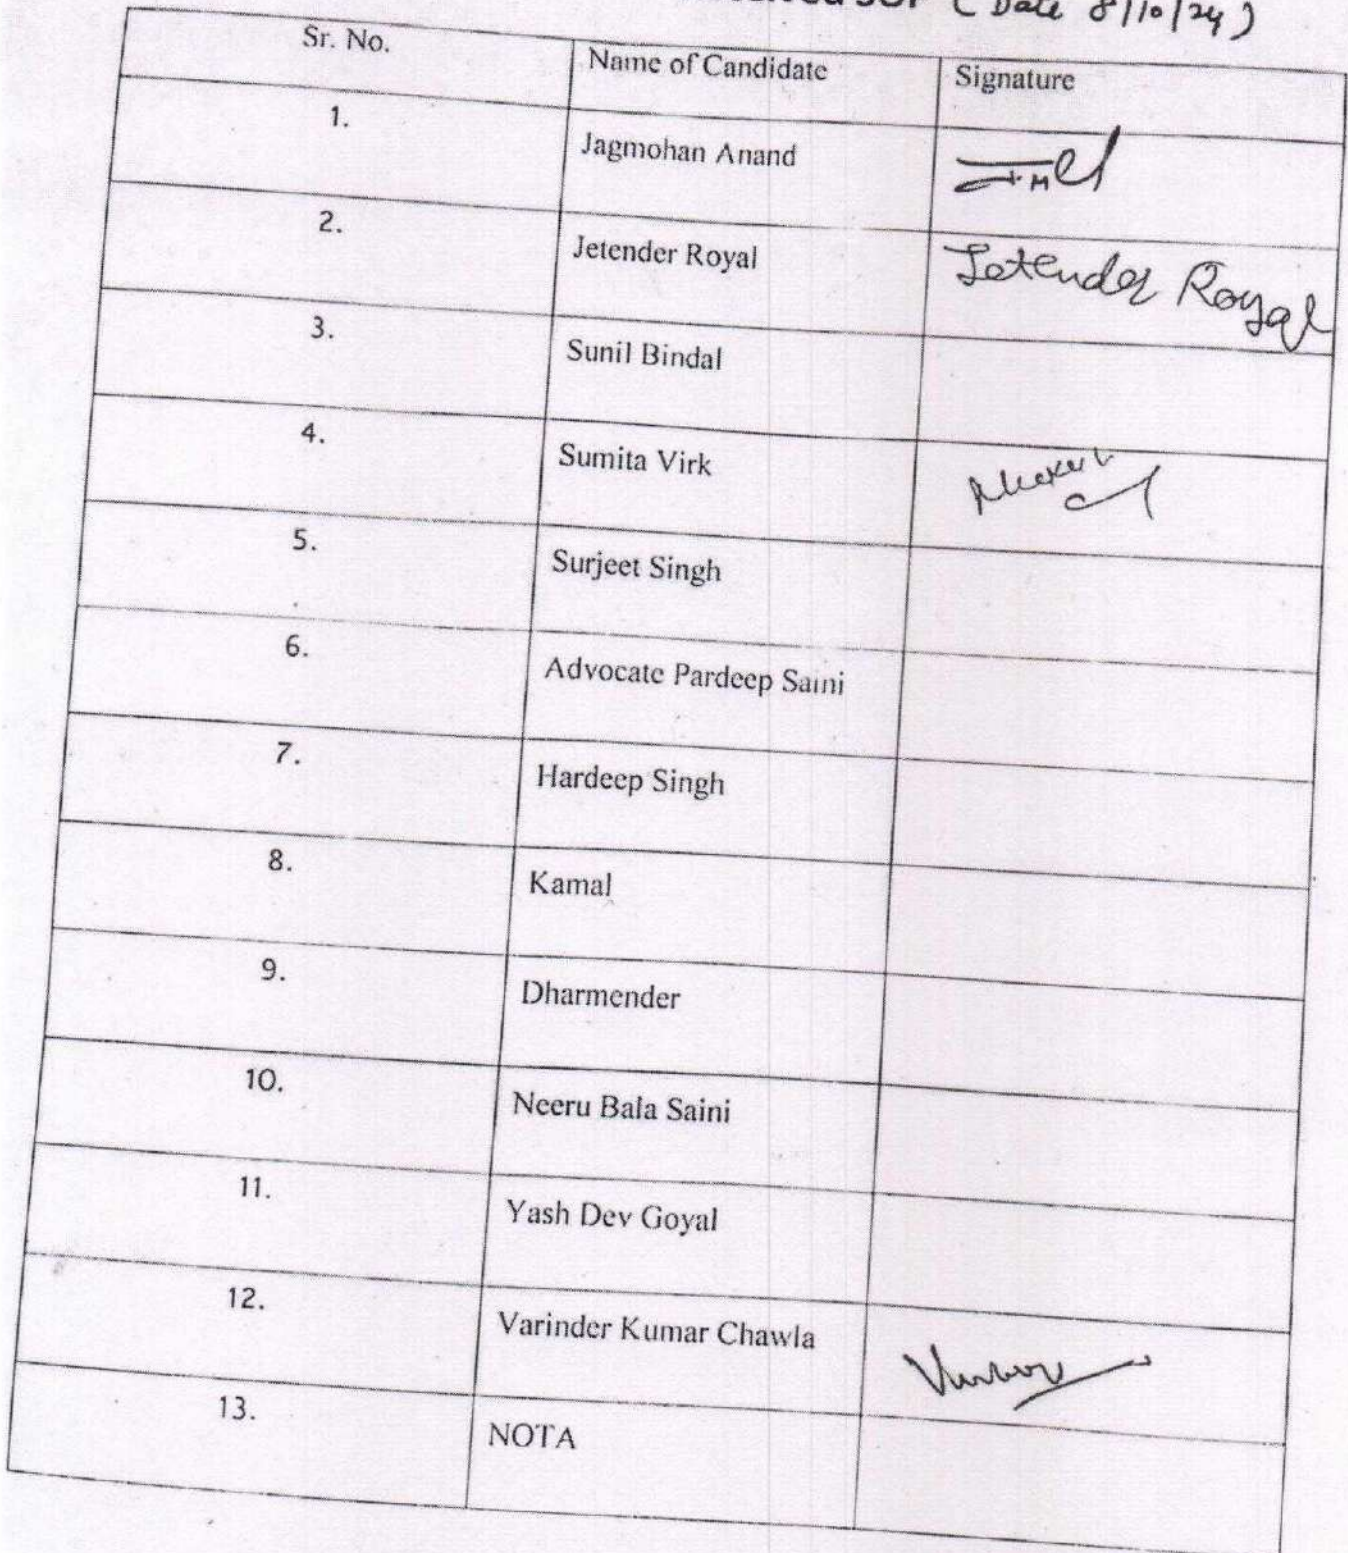 SOP (Date 8/10/24)
Sr. No. Name of Candidate Signature
1. Jagmohan Anand
2. Jetender Royal Jetender Royal
3. Sunil Bindal
4. Sumita Virk
5. Surjeet Singh
6. Advocate Pardeep Saini
7. Hardeep Singh
8. Kamal
9. Dharmender
10. Neeru Bala Saini
11. Yash Dev Goyal
12. Varinder Kumar Chawla
13. NOTA